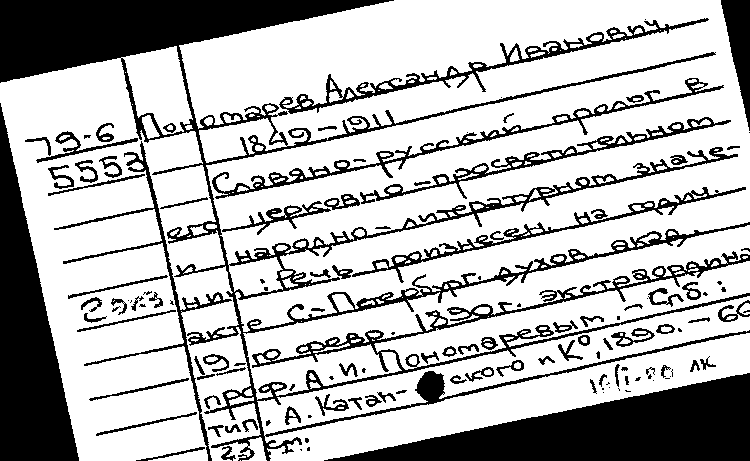 79-6 Пономарев, Александр Иванович,
5553 1849-1911
Славяно-русский пролог в
его церковно-просветительном
и народно-литературном значе-
2 экз. нии: Речь произнесен. на годич.
акте С.-Петербург. духов. акад.
19-го февр. 1890г. экстраордина
проф. А.И. Пономаревым. - Спб.:
тип. А. Катан- ского и К°, 1890. - 66
23 см:
лк